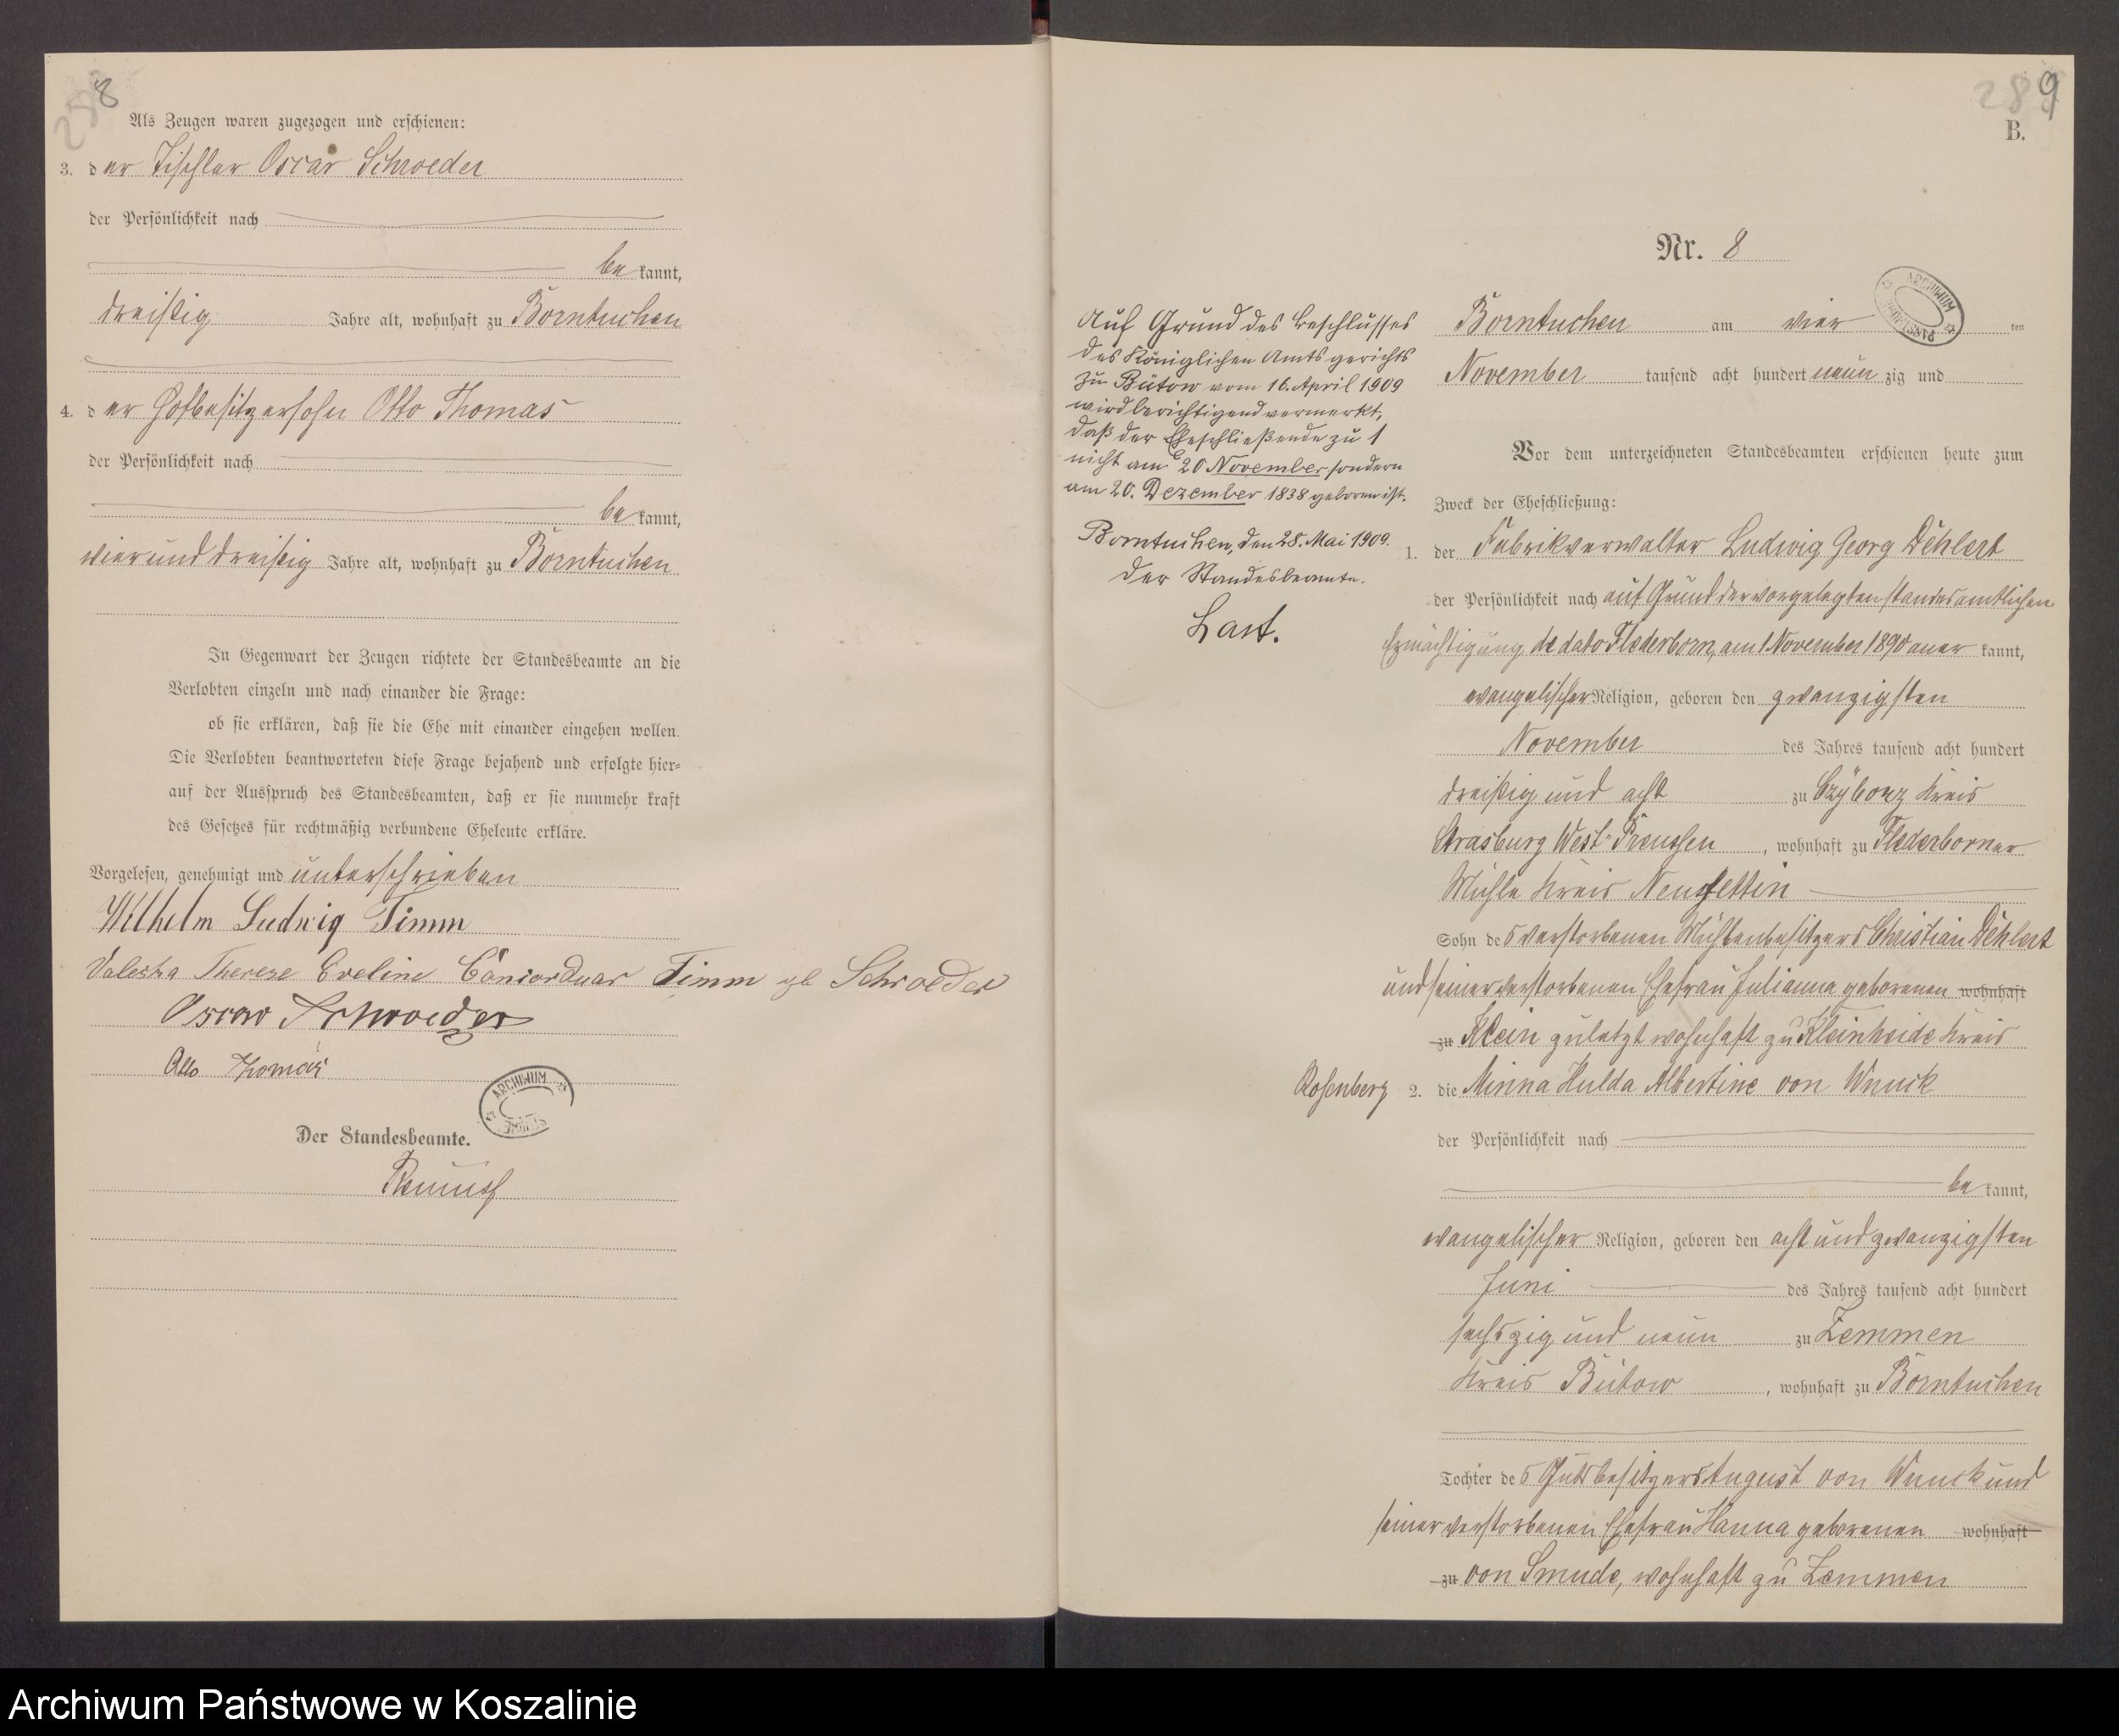 8
Als Zeugen waren zugezogen und erschienen:
3. der Tischler Oscar Schroeder
der Persönlichkeit nach
bekannt,
dreißig Jahre alt, wohnhaft zu Borntuchen
4. der Hofbesitzersohn Otto Thomas
der Persönlichkeit nach
bekannt,
vierunddreißig Jahre alt, wohnhaft zu Borntuchen
In Gegenwart der Zeugen richtete der Standesbeamte an die
Verlobten einzeln und nach einander die Frage:
ob sie erklären, daß sie die Ehe mit einander eingehen wollen.
Die Verlobten beantworteten diese Frage bejahend und erfolgte hier-
auf der Ausspruch des Standesbeamten, daß er sie nunmehr kraft
des Gesetzes für rechtmäßig verbundene Eheleute erkläre.
Vorgelesen, genehmigt und unterschrieben
Wilhelm Ludwig Timm
Valeska Therese Eveline Timm gb Schroeder
Oscar Schroeder
Otto Thomas
ARCHIWUM
Der Standesbeamte.
289
B.
Nr. 8
ARCHIWUM PAŃSTWOWE
Borntuchen am vier ten
November tausend acht hundert neunzig und
Vor dem unterzeichneten Standesbeamten erschienen heute zum
Zweck der Eheschließung:
1. der Fabrikverwalter Ludwig Georg Dehlert
der Persönlichkeit nach auf Grund der vorgelegten standesamtlichen
Ermächtigung de dato Flederborn, am 1 November 1890 anerkannt,
evangelischer Religion, geboren den zwanzigsten
November des Jahres tausend acht hundert
dreißig und acht zu Kreis
Strasburg West-Preussen, wohnhaft zu Flederborner
Mühle Kreis Neustettin
Sohn des verstorbenen Mühlenbesitzers Christian Dehlert
und seiner verstorbenen Ehefrau Julianna geborenen wohnhaft
zu Klein zuletzt wohnhaft zu Kleinheide Kreis
Rosenberg
2. die Minna Hulda Albertine von Wnuck
der Persönlichkeit nach
bekannt,
evangelischer Religion, geboren den acht und zwanzigsten
Juni des Jahres tausend acht hundert
sechszig und neun zu Zemmen
Kreis Bütow, wohnhaft zu Borntuchen
Tochter des Gutsbesitzers August von Wnuck und
seiner verstorbenen Ehefrau Hanna geborenen wohnhaft
zu von Smude, wohnhaft zu Zemmen
Auf Grund des Beschlusses
des Königlichen Amtsgerichts
zu Bütow vom 16. April 1909
wird berichtigend vermerkt,
daß der Eheschließende zu 1
nicht am 20 November sondern
am 20. Dezember 1838 geboren ist.
Borntuchen, den 28. Mai 1909.
Der Standesbeamte.
Last.
Archiwum Państwowe w Koszalinie